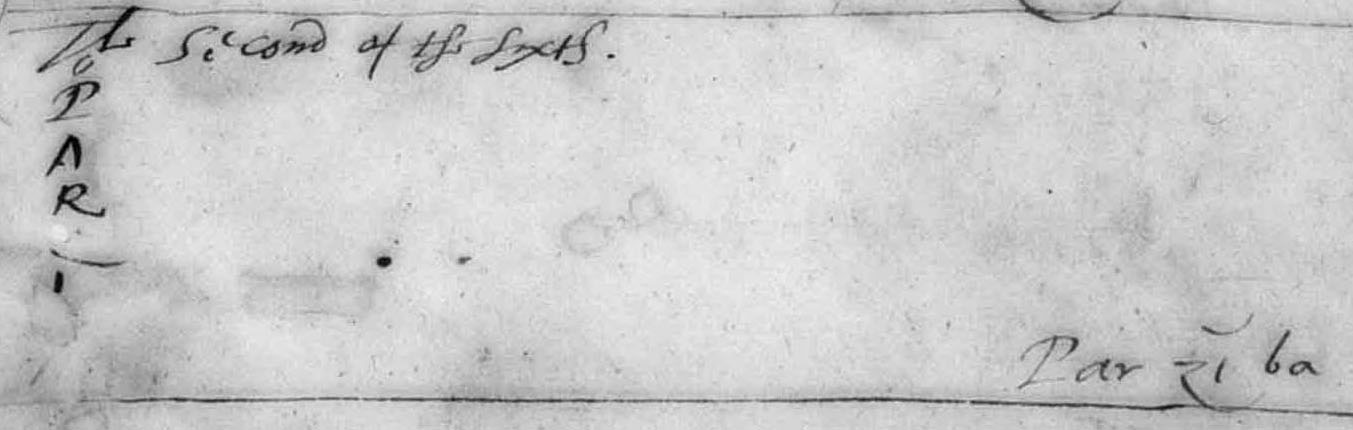 The Second of the Sixth.
o
P
A
R
Z
I
Par zi ba